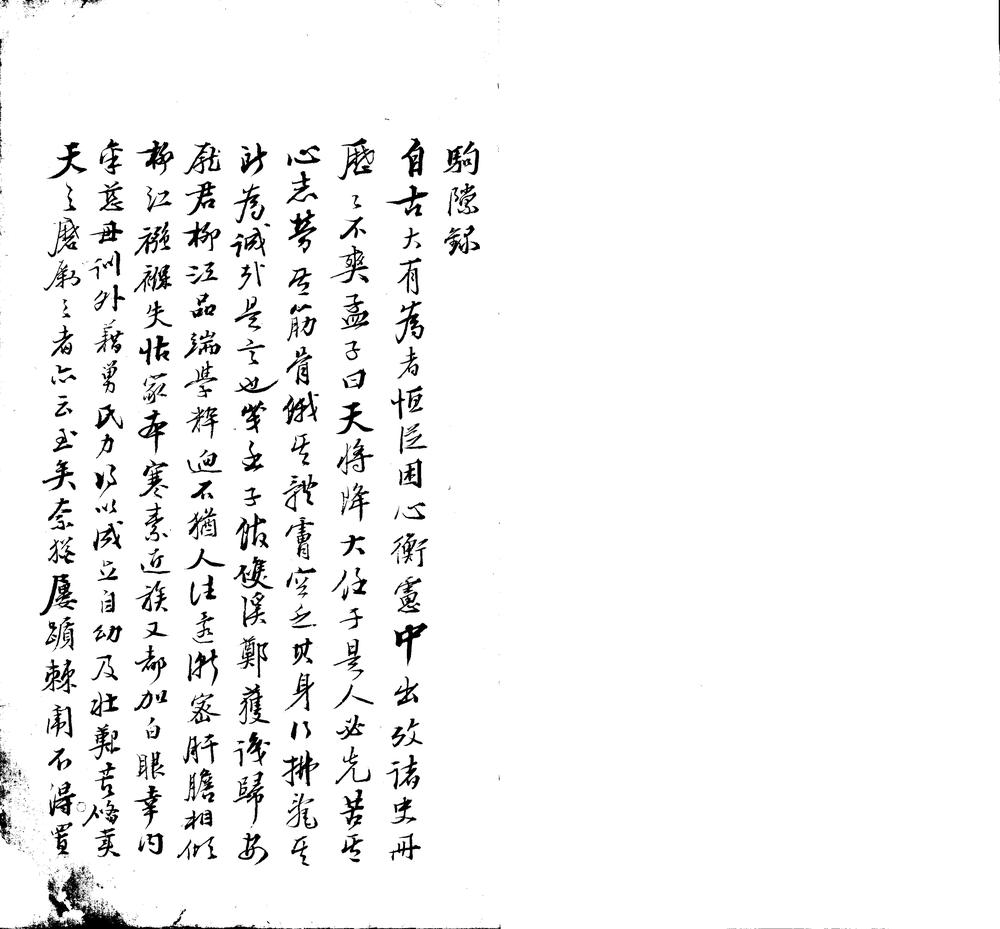 駒隙録
自古大有為者恒從困心衡慮中出攷諸史冊
歷〻不爽孟子曰天將降大任于是人必先苦其
心志勞其筋骨餓其體膚空乏其身行拂亂其
所為誠哉是言也癸丑子館雙溪鄭獲識歸安
戚君柳江品端學粹迥不猶人往還漸密肝膽相傾
柳江襁褓失怙家本寒素近族又都加白眼幸內
承慈母訓外藉舅氏力得以成立自幼及壯艱苦備嘗
天之磨勵之者亦云至矣奈猶屢躓棘闈不得置